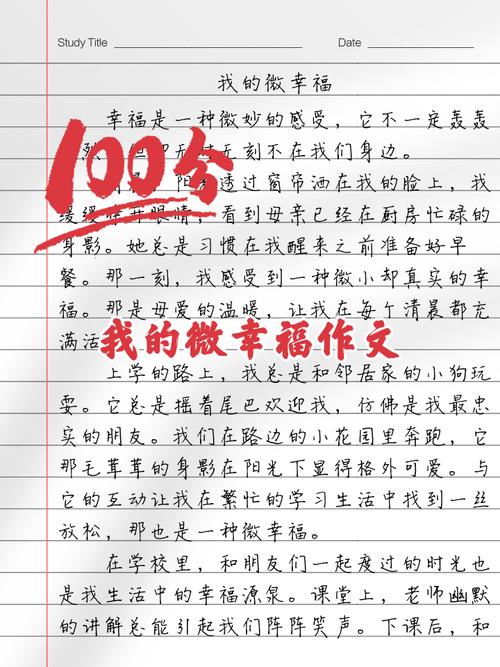 Study Title
Date
我的微幸福
幸福是一种微妙的感受，它不一定轰轰
烈 无时无刻不在我们身边。
100分
阳 透过窗帘洒在我的脸上，我
缓缓 开眼睛，看到母亲已经在厨房忙碌的
身影。她总是习惯在我醒来之前准备好早
餐。那一刻，我感受到一种微小却真实的幸
福。那是母爱的温暖，让我在每个清晨都充
满活
我的微幸福作文
上学的路上，我总是和邻居家的小狗玩
耍。它总是摇着尾巴欢迎我，仿佛是我最忠
实的朋友。我们在路边的小花园里奔跑，它
那毛茸茸的身影在阳光下显得格外可爱。与
它的互动让我在繁忙的学习生活中找到一丝
放松，那也是一种微幸福。
在学校里，和朋友们一起度过的时光也
是我生活中的幸福源泉。课堂上，老师幽默
的讲解总能引起我们阵阵笑声。下课后，和